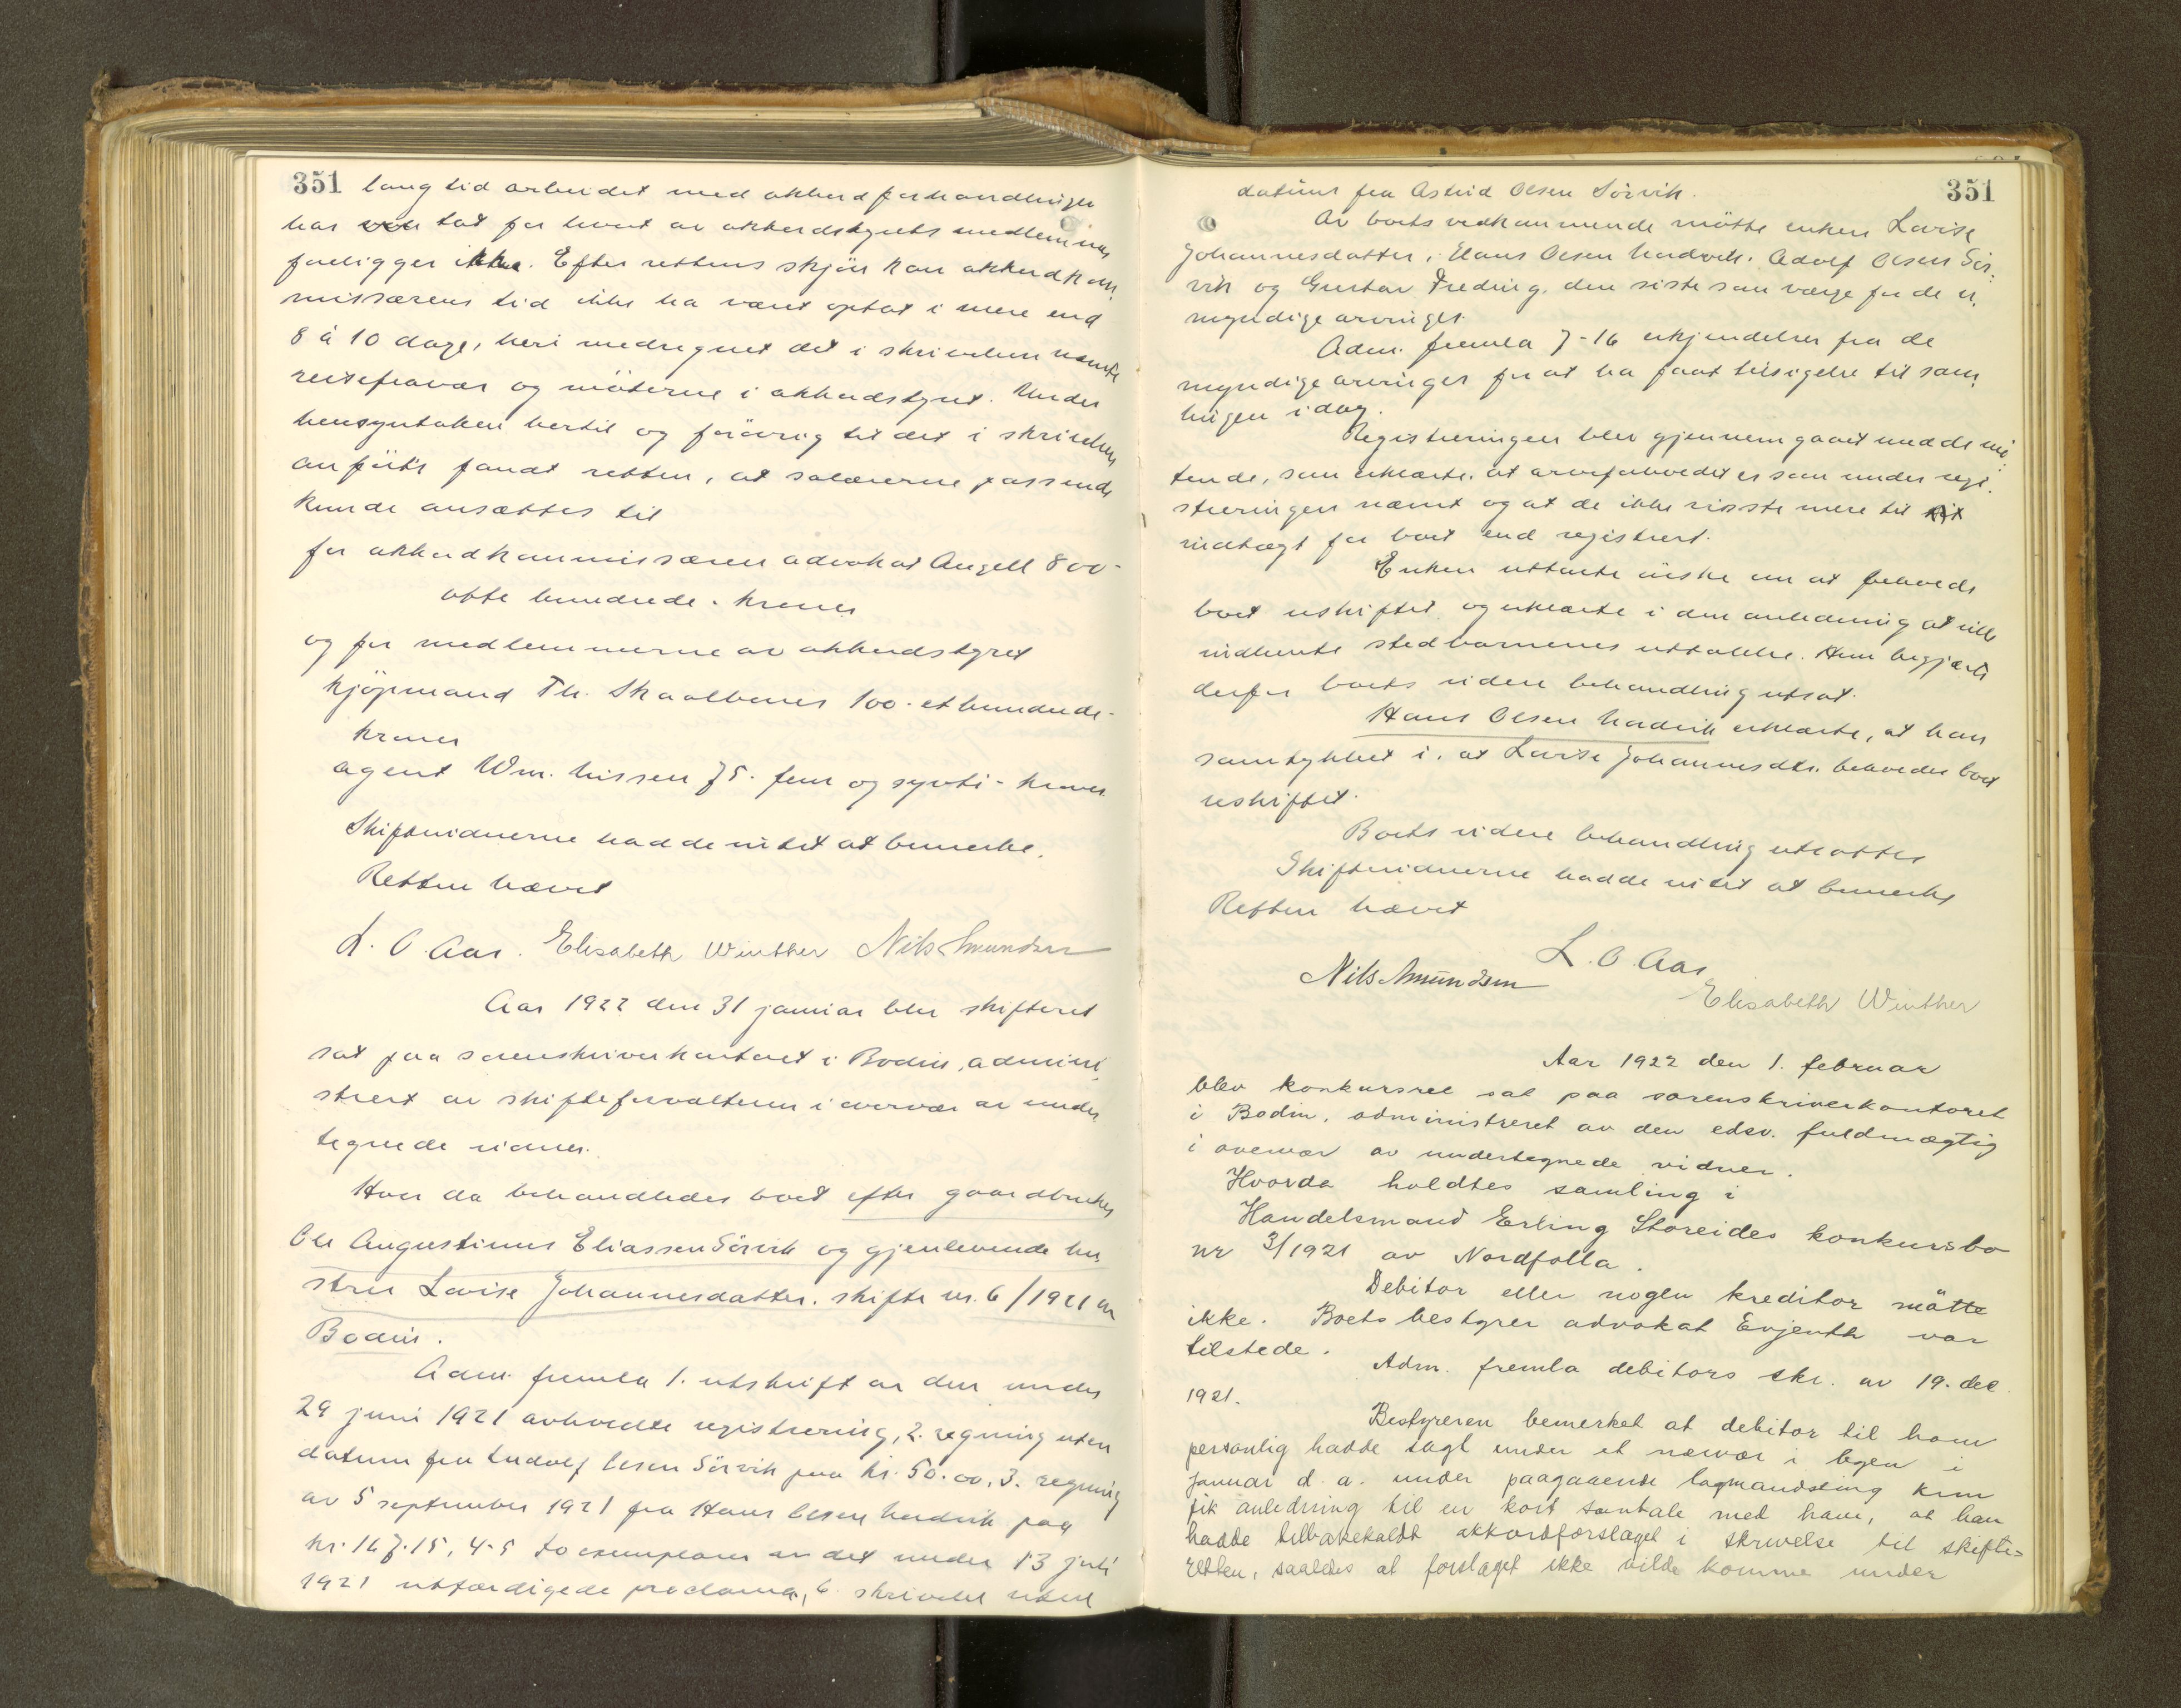 351 lang tid arbeidet med akkordforhandlinger
har tat for hvert av akkordstyrets medlemmer
foreligger ikke. Efter rettens skjön kan akkordkom¸
missærens tid ikke ha været optat i mere end
8 à 10 dage, heri medregnet det i skrivelsen nævnte
reisefravær og möterne i akkordstyret. Under
hensyntaken hertil og forövrig til det i skrivelsen
anförte fandt retten, at salærerne passende
kunde ansættes til
for akkordkommissæren advokat Angell 800-
otte hundrede - kroner
og for medlemmerne av akkordstyret
kjöpmand Th. Skaalbones 100 - et hundrede -
kroner
agent Wm. Nissen 75 - fem og sytti - kroner.
Skiftevidnerne hadde intet at bemerke.
Retten hævet
L. O. Aas. Elisabeth Winther Nils Amundsen
Aar 1922 den 31 januar blev skifteret
sat paa sorenskriverkontoret i Bodin, admini¸
strert av skifteforvalteren i overvær av under
tegnede vidner.
Hvor da behandledes boet efter gaardbruker
Ole Augustinus Eliassen Sörvik og gjenlevende hu¸
stru Lovise Johannesdatter. skifte nr. 6/1921 av
Bodin.
Adm. fremla 1. utskrift av den under
29 juni 1921 avholdte registrering, 2. regning uten
datum fra Ludolf Olsen Sörvik paa kr. 50.00, 3. regning
av 5 september 1921 fra Hans Olsen Nordvik paa
kr. 167.15, 4-5 to exemplarer av det under 13 juli
1921 utfærdigede proclama, 6. skrivelse uten
351
datum fra Astrid Olsen Sörvik.
Av boets vedkommende mötte enken Lovise
Johannesdatter, Hans Olsen Nordvik, Adolf Olsen Sör¸
vik og Gustav Freding, den siste som værge for de u¸
myndige arvinger.
Adm. fremla 7-16 erkjendelser fra de
myndige arvinger for at ha faat tilsigelse til sam¸
lingen idag.
Registreringen blev gjennemgaaet med de mö¸
tende, som erklærte, at arveforholdet er som under regi¸
streringen nævnt og at de ikke visste mere til
indtægt for boet end registrert.
Enken uttalte önske om at beholde
boet uskiftet og erklærte i den anledning at ville
indhente stedbarnenes uttalelse. Hun begjærte
derfor boets videre behandling utsat.
Hans Olsen Nordvik erklærte, at han
samtykket i, at Lovise Johannesdtr. beholder boet
uskiftet.
Boets videre behandling utsattes
Skiftevidnerne hadde intet at bemerke
Retten hævet
L. O. Aas
Nils Amundsen
Elisabeth Winther
Aar 1922 den 1. februar
blev konkursret sat paa sorenskriverkontoret
i Bodin, administreret av den edsv. fuldmægtig
i overvær av undertegnede vidner.
Hvorda holdtes samling i
Handelsmand Erling Storeides konkursbo
nr 3/1921 av Nordfolla.
Debitor eller nogen kreditor mötte
ikke. Boets bestyrer advokat Evjenth var
tilstede.
Adm. fremla debitors skr. av 19. dec.
1921.
Bestyreren bemerket at debitor til ham
personlig hadde sagt under et nærvær i byen i
Januar d. a. under paagaaende lagmandsting hvor
fik anledning til en kort samtale med ham, at han
hadde tilbakekaldt akkordforslaget i skrivelse til skifte=
retten, saaledes at forslaget ikke vilde komme under